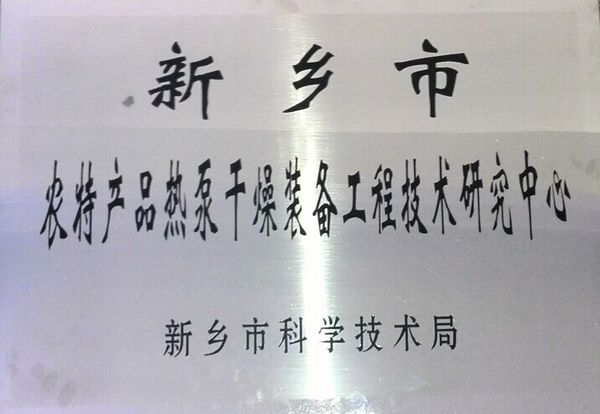 新乡市
农特产品热泵干燥装备工程技术研究中心
新乡市科学技术局